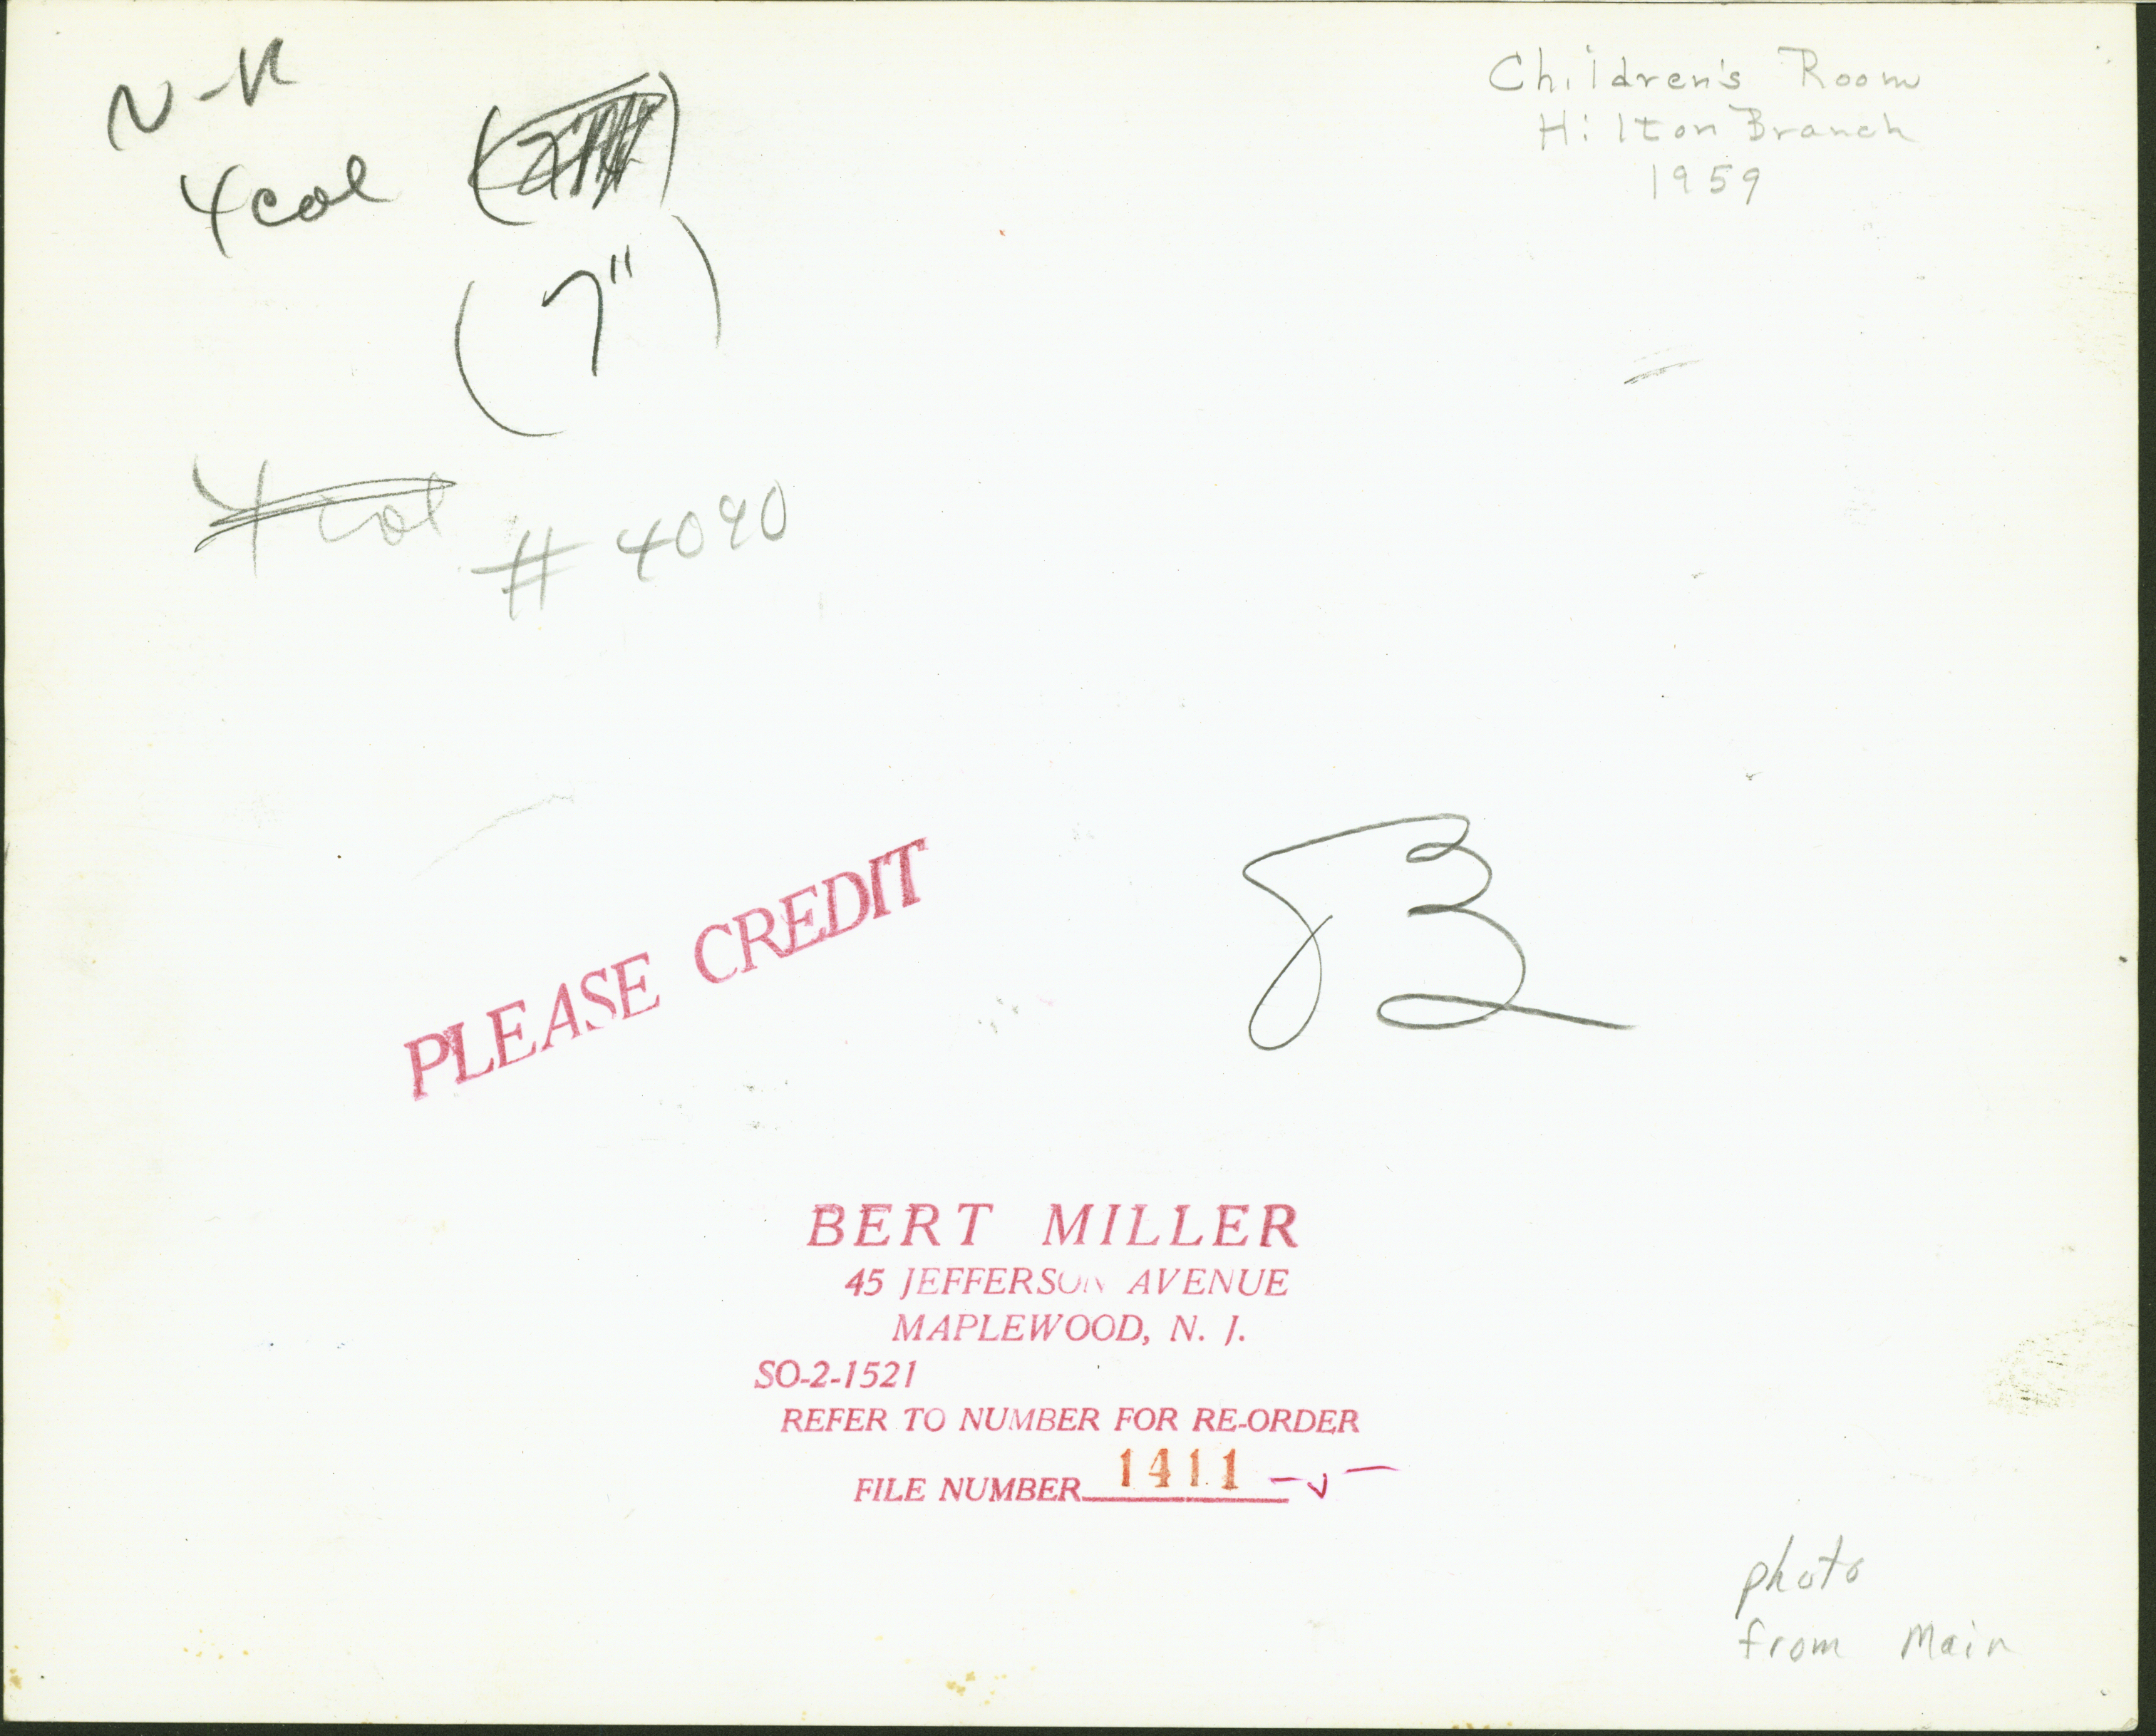 N-R
4 col
(7")
4 col
# 4090
Children's Room
Hilton Branch
1959
PLEASE CREDIT
B
BERT MILLER
45 JEFFERSON AVENUE
MAPLEWOOD, N. J.
SO-2-1521
REFER TO NUMBER FOR RE-ORDER
FILE NUMBER 1411
photo
from Main